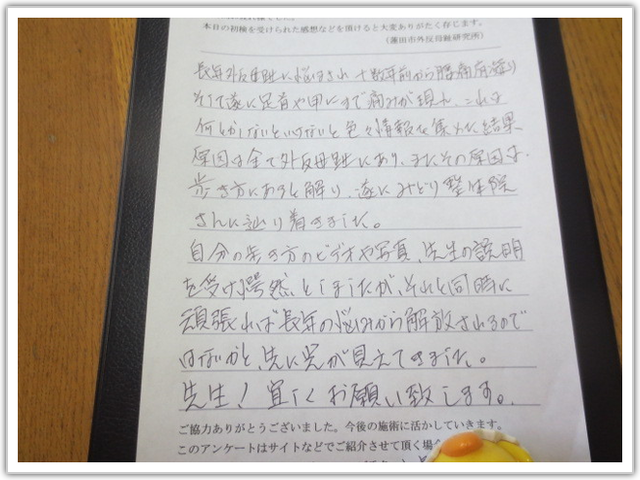 本日の初検を受けられた感想などを頂けると大変ありがたく存じます。
（蓮田市外反母趾研究所）
長年外反母趾に悩まされ 十数年前から腰痛有り
そして遂に足首や甲にまで痛みが現れ、これは
何とかしないといけないと色々情報を集めた結果
原因は全て外反母趾にあり、またその原因は、
歩き方にあると解り、遂にみどり整体院
さんに辿り着きました。
自分の歩き方のビデオや写真、先生の説明
を受け愕然としましたが、それと同時に
頑張れば長年の悩みから解放されるので
はないかと、先に光が見えてきました。
先生！宜しくお願い致します。
ご協力ありがとうございました。今後の施術に活かしていきます。
このアンケートはサイトなどでご紹介させて頂く場